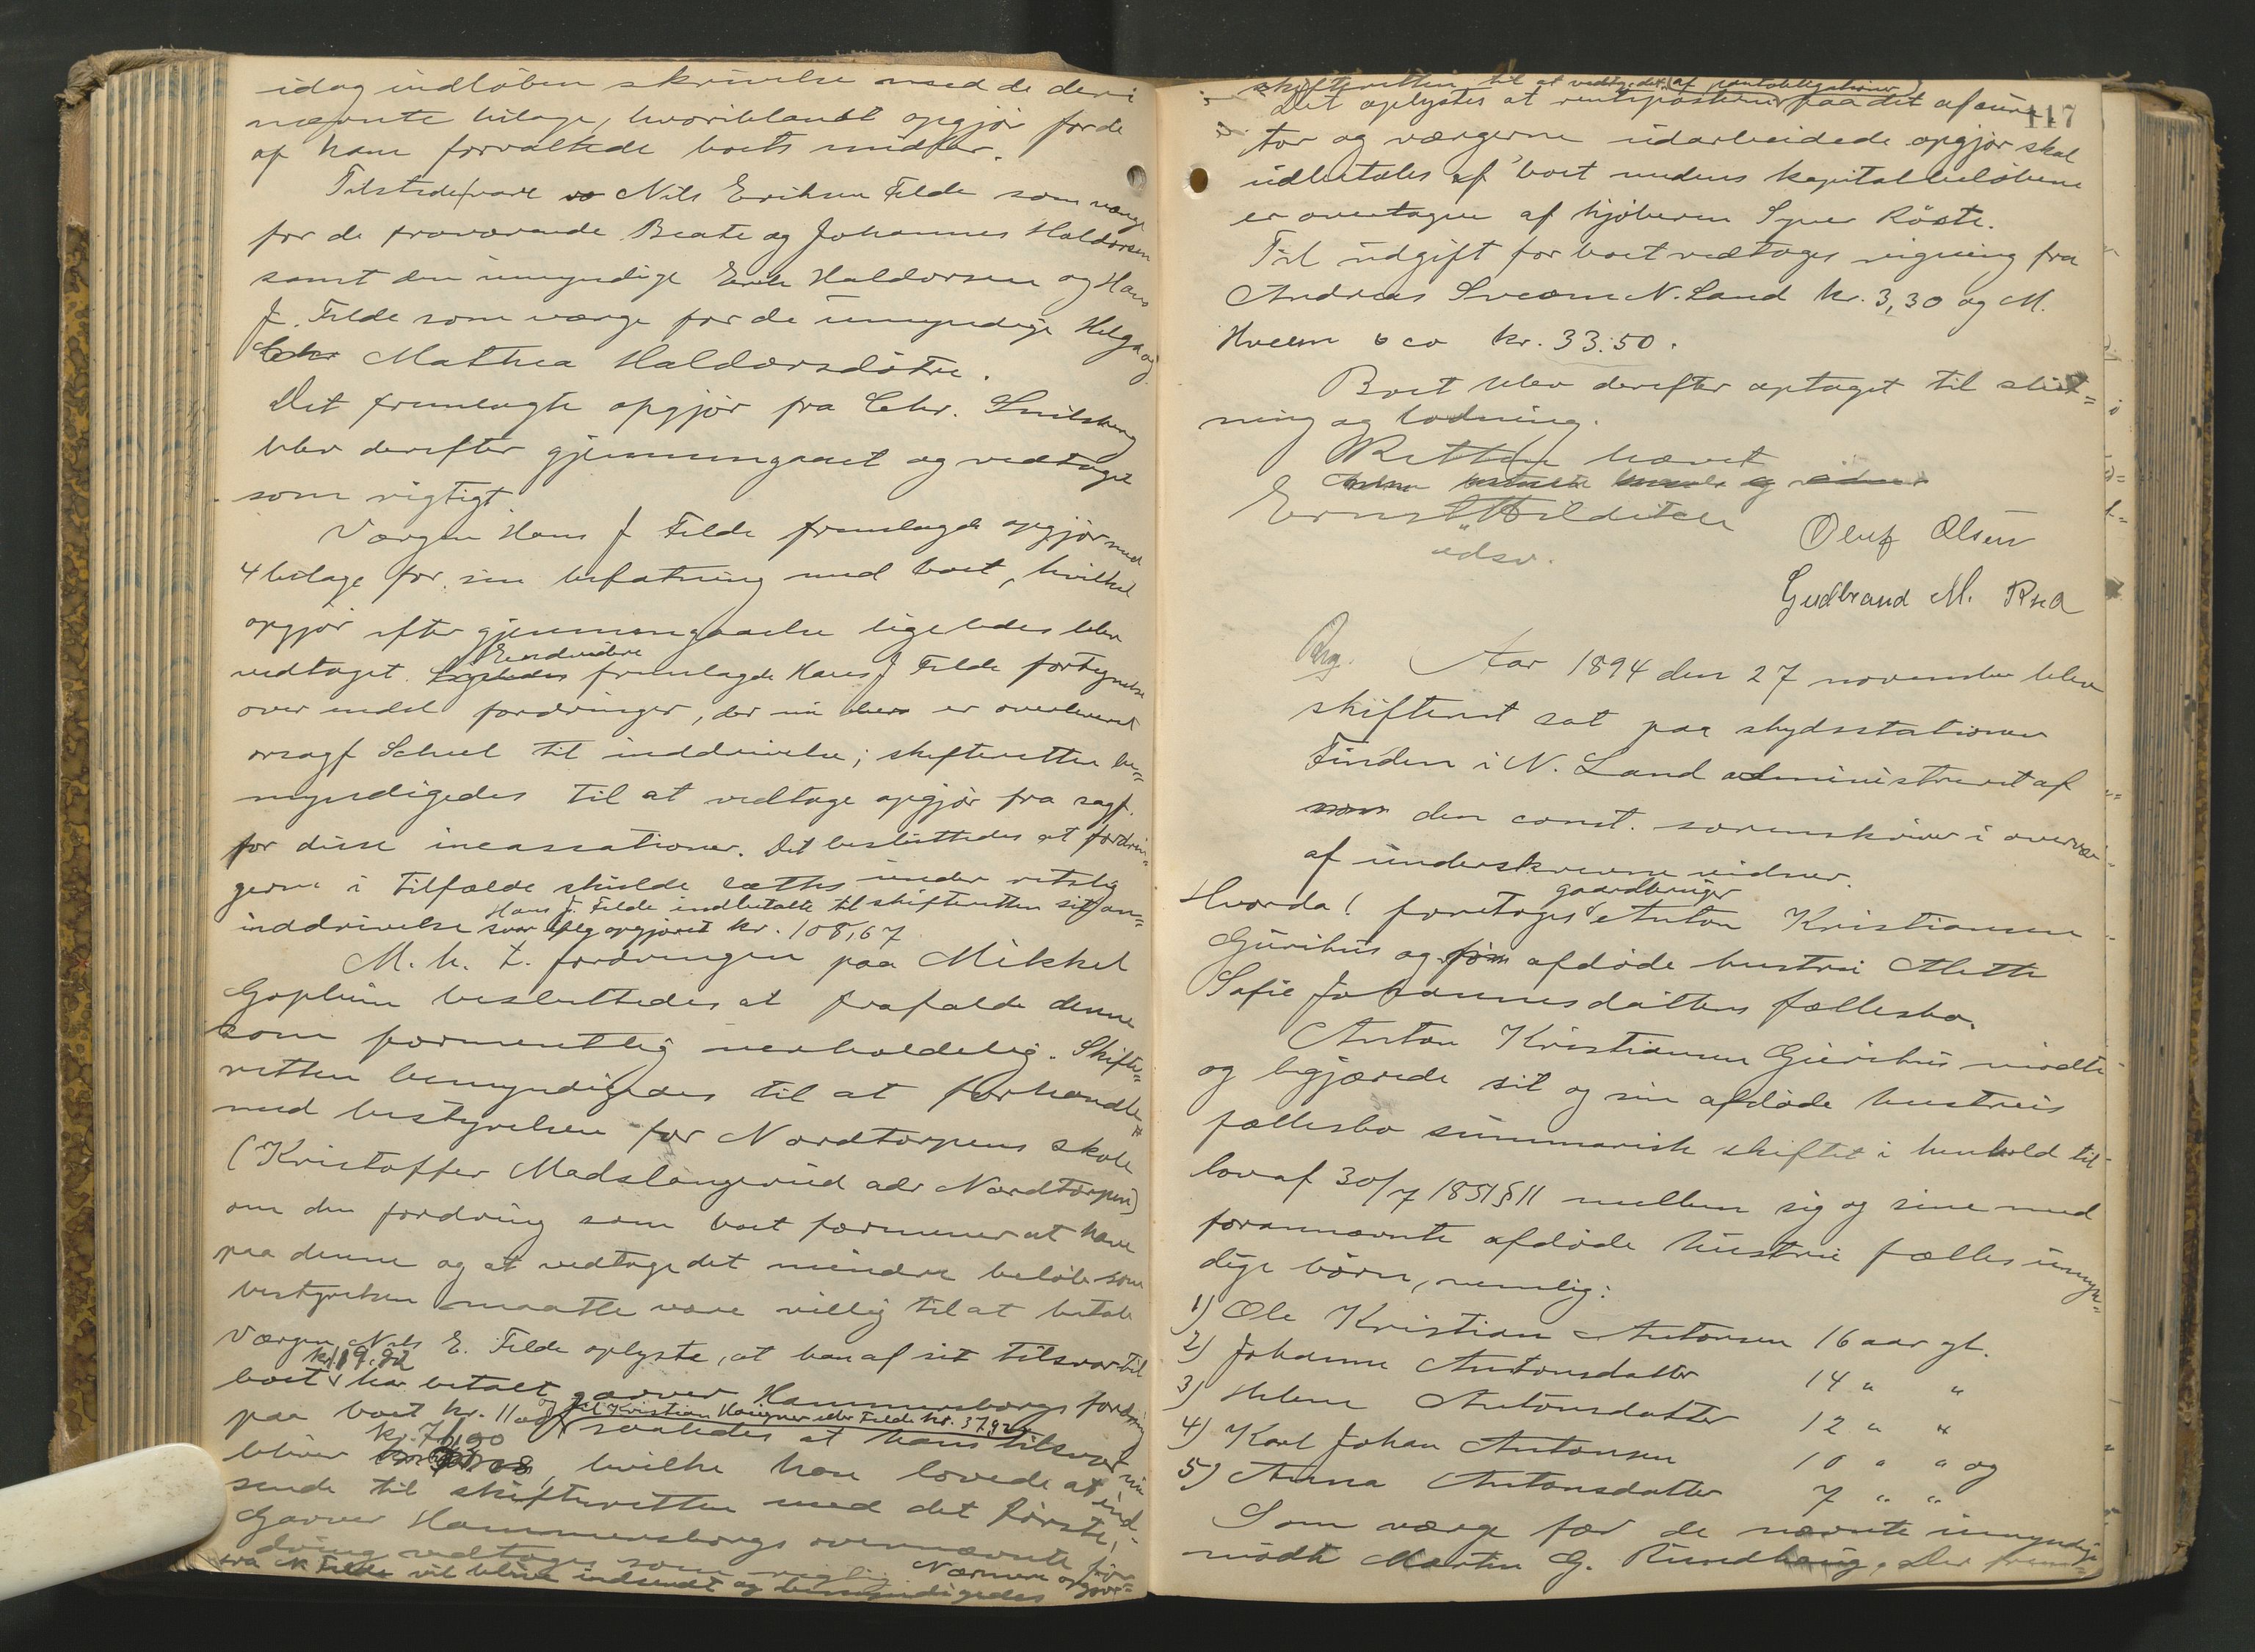 idag indløben skrivelse med de deri
nævnte bilage, hvoriblandt opgjør for de
af ham forvaltede boets midler.
Tilstede var Nils Eriksen Felde som værge
for de fraværende Beate og Johannes Haldorsen
samt den umyndige Erik Haldorsen og Hans
J. Felde som værge for de umyndige Helga og
Mathea Haldorsdøtre.
Det fremlagte opgjør fra Chr. Smilsberg
blev derefter gjennemgaaet og vedtaget
som rigtigt.
Værgen Hans J Felde fremlagde opgjør med
4 bilage for sin befatning med boet, hvilket
opgjør efter gjennemgaaelse ligeledes blev
vedtaget. Endvidere fremlagde Hans J Felde fortegnelse
over endel fordringer, der nu er overleveret
orsagf Scheel til inddrivelse; skifteretten be=
myndigedes til at vedtage opgjør fra sagf.
for disse incassationer. Det besluttedes at fordrin=
gerne i tilfælde skulde sættes under retslig
inddrivelse Hans J. Felde indbetalte til skifteretten sit an=
svar ifølg opgjøret kr. 108,67
M. h. t. fordringen paa Mikkel
Goplein besluttedes at frafalde denne
som formentlig uerholdelig. Skifte=
retten bemyndigedes til at forhandle
med bestyrelsen for Nordtorpens skole
(Kristoffer Madslangerud adr Nordtorpen)
om den fordring som boet formener at have
paa denne og at vedtage det mindre beløb som
bestyrelsen maatte være villig til at betale
Værgen Nils E. Felde oplyste, at han af sit tilsvar til
boet kr 19.92 har betalt garver Hammersborgs fordring
paa boet kr. 11 og til Kristian Haugner eller Felde kr. 37,92 saaledes at hans tilsvar nu
bliver kr. 71,00 hvilke han lovede at ind=
sende til skifteretten med det første.
Garver Hammersborgs ovennævnte for=
dring vedtages som rigtig. Nærmere opgjør
fra N Felde vil blive indsendt og bemyndigedes
117
skifteretten til at vedtage det. af pantobligationer
Det oplystes at renteposterne paa det af cura=
tor og værgerne udarbeidede opgjør skal
udbetales af boet medens kapitalbeløbene
er overtagne af kjøberen Syver Röste.
Til udgift for boet vedtages regning fra
Andreas Sveom N. Land kr. 3,30 og M.
Hveem & co kr. 33.50.
Boet blev derefter optaget til slut=
ning og lodning.
Retten hævet
Ernst Hilditch
Oluf Olsen
udsv.
Gudbrand M. Rud
Aar 1894 den 27 november blev
skifteret sat paa skydsstationen
Finden i N. Land administreret af
den const. sorenskriver i overvær
af underskrevne vidner.
Hvorda: foretoges gaardbruger Anton Kristiansen
Gurihus og afdøde hustru Mette
Sofie Johannesdatters fællesbo.
Anton Kristiansen Gurihus mødte
og begjærede sit og sin afdøde hustrus
fællesbo summarisk skiftet i henhold til
lov af 30/7 1851 § 11 mellem sig og sine med
forannævnte afdøde hustru fælles umyn=
dige børn, nemlig:
1) Ole Kristian Antonsen 16 aar gl.
2) Johanne Antonsdatter 14 " "
3) Helene Antonsdatter 12 " "
4) Karl Johan Antonsen 10 " " og
5) Anna Antonsdatter 7 " "
Som værge for de nævnte umyndige
mødte Martin G. Rundhaug. Der frem=